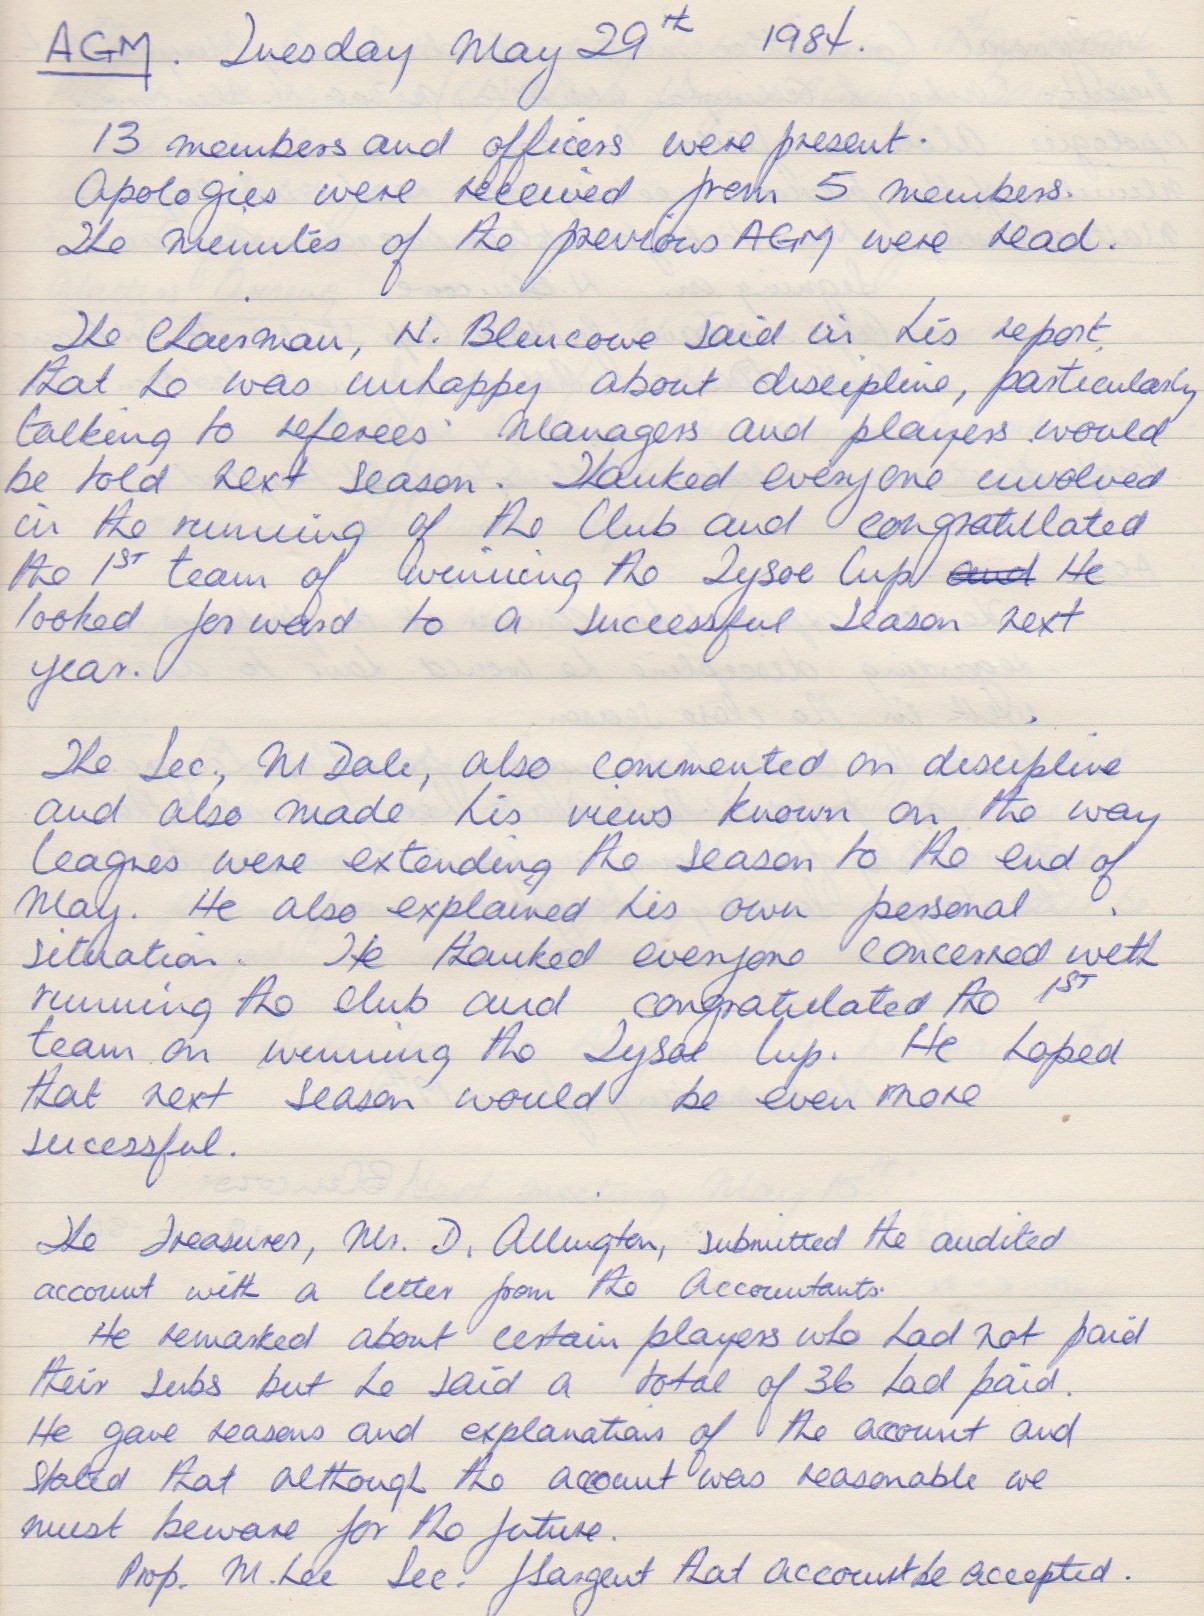 AGM. Tuesday May 29th 1984.
13 members and officers were present.
Apologies were received from 5 members.
The minutes of the previous AGM were read.
The Chairman, N. Blencowe said in his report,
that he was unhappy about discipline, particularly
talking to referees. Managers and players would
be told next season. Thanked everyone involved
in the running of the Club and congratulated
the 1ST team of winning the Tysoe Cup and He
looked forward to a successful season next
year.
The Sec., M Dale, also commented on discipline
and also made his views known on the way
leagues were extending the season to the end of
May. He also explained his own personal
situation. He thanked everyone concerned with
running the club and congratulated the 1ST
team on winning the Tysoe Cup. He hoped
that next season would be even more
sucessful.
The Treasurer, Mr. D. Allington, submitted the audited
account with a letter from the Accountants.
He remarked about certain players who had not paid
their subs but he said a total of 36 had paid.
He gave reasons and explanations of the account and
stated that although the account was reasonable we
must beware for the future.
Prop. M. Lee Sec. J Sargent that account be accepted.